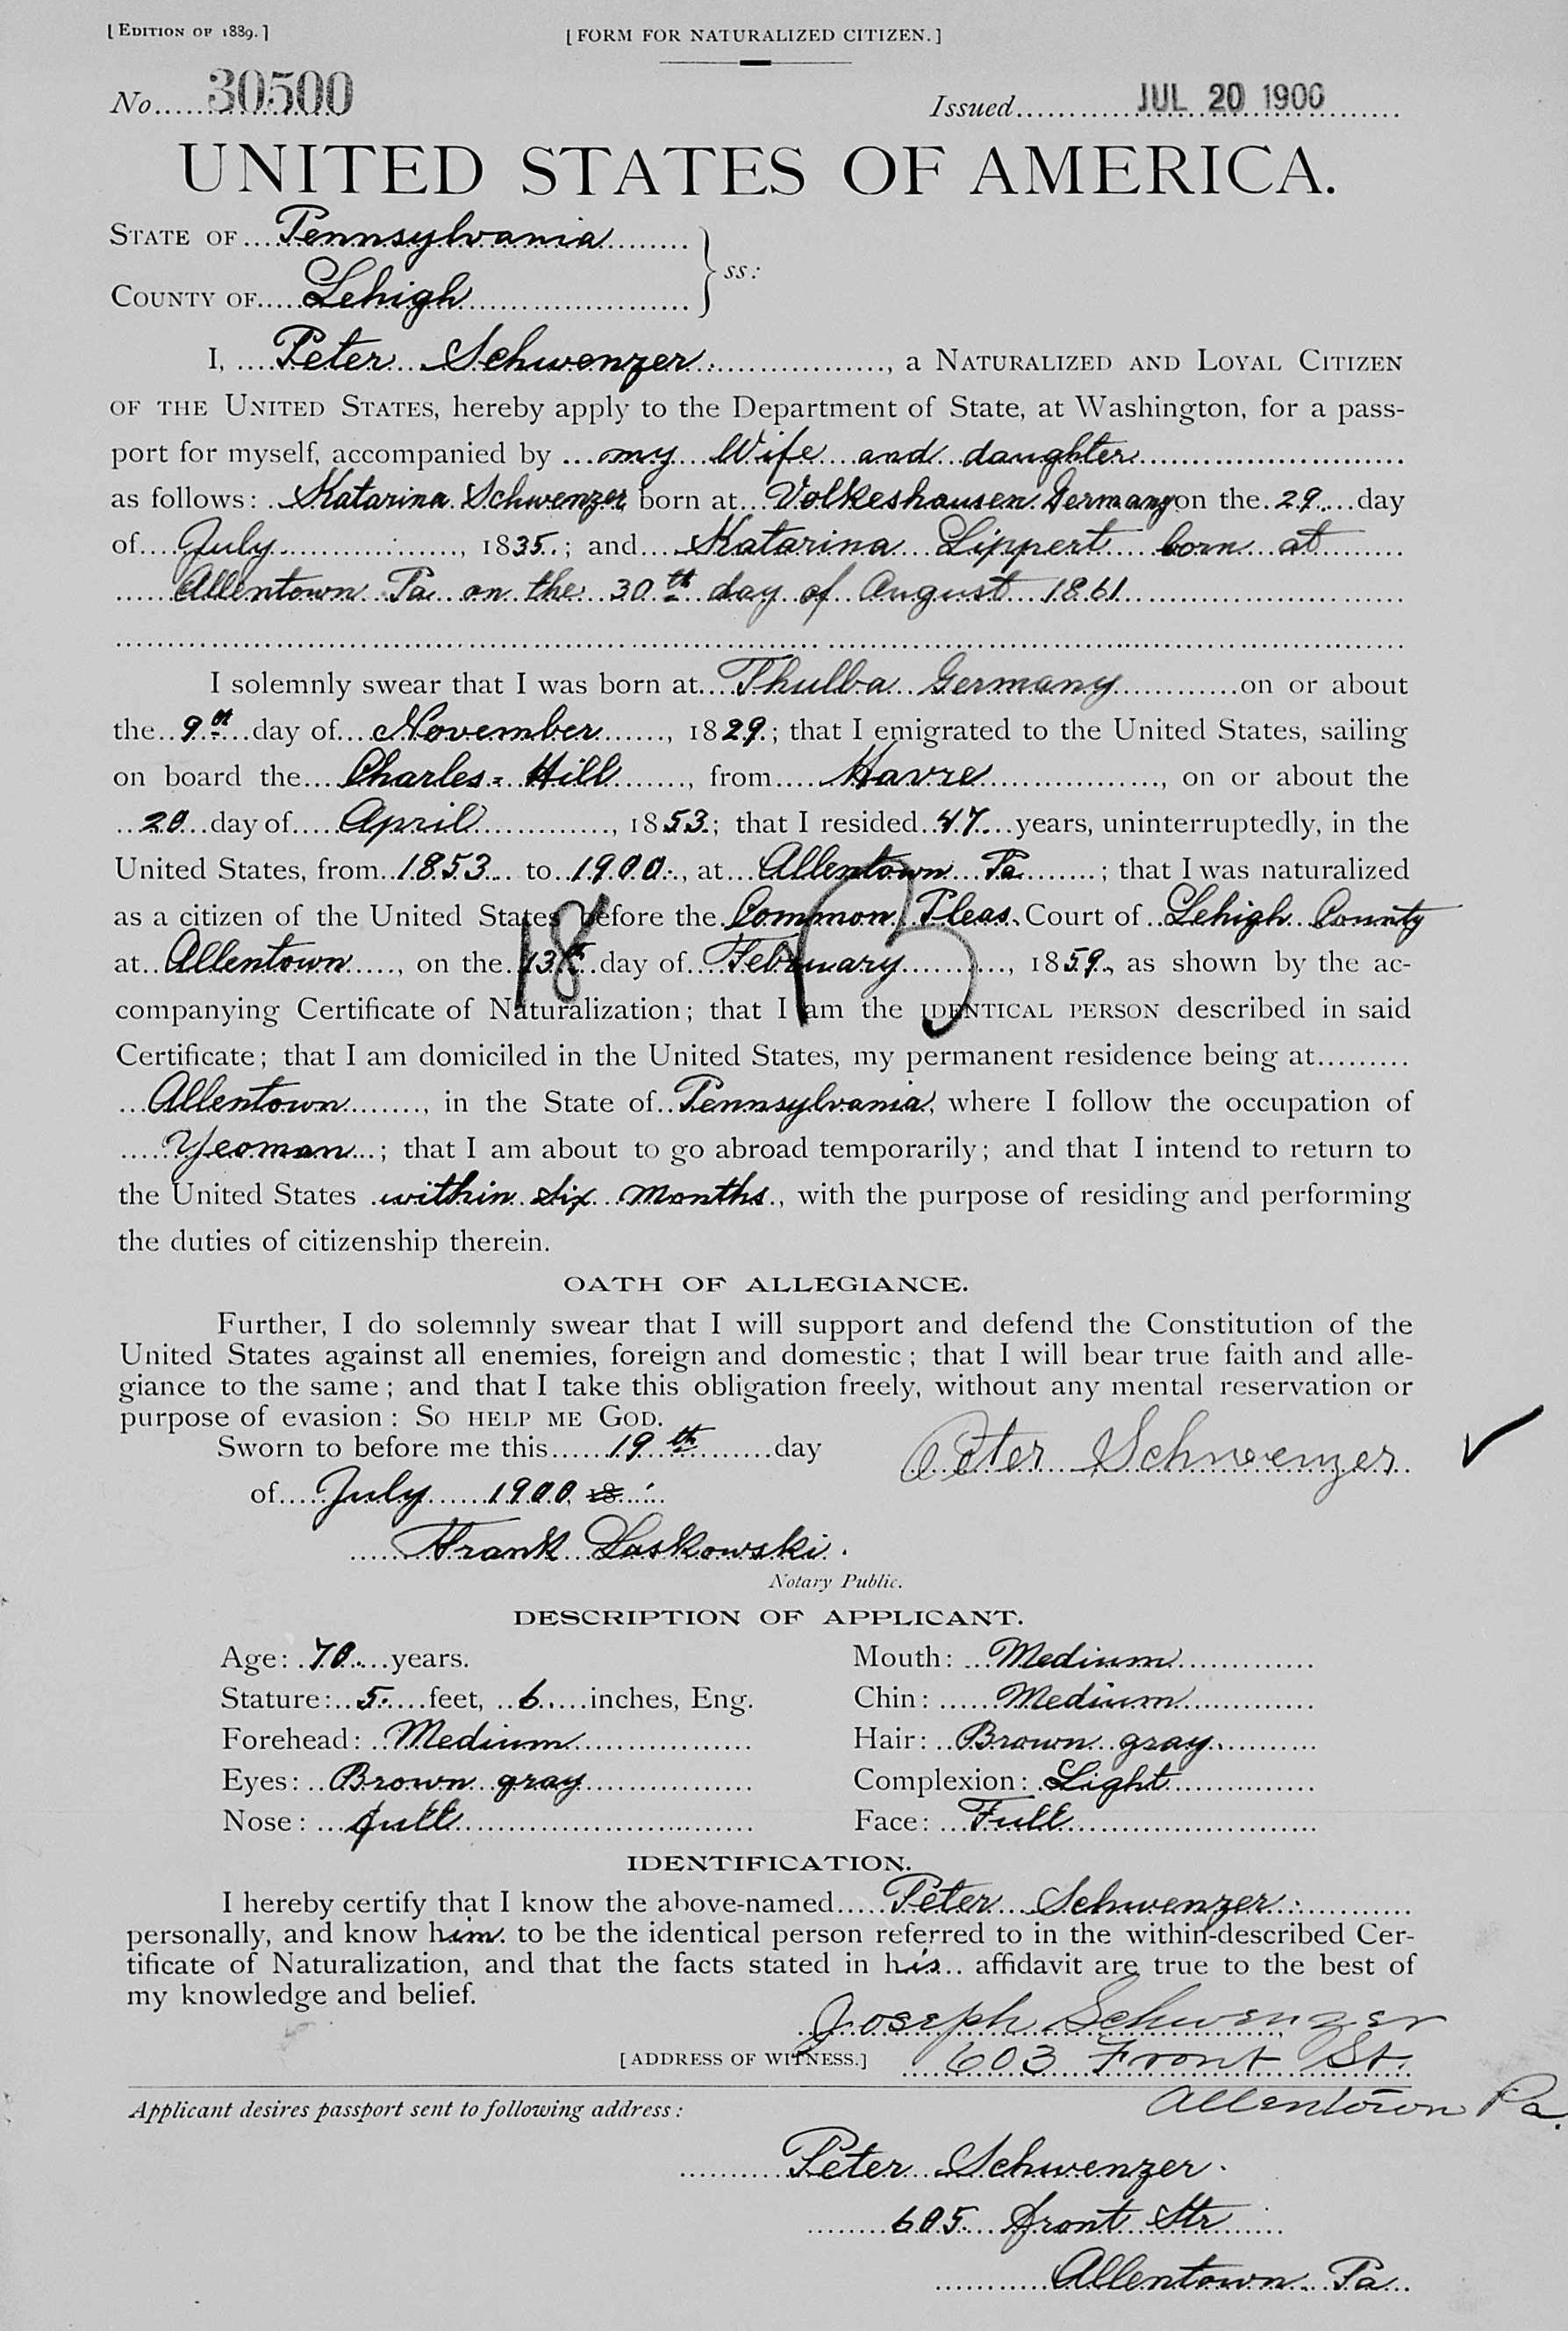 [EDITION OF 1889.]
[FORM FOR NATURALIZED CITIZEN.]
No. 30500 Issued JUL 20 1900
UNITED STATES OF AMERICA.
STATE OF Pennsylvania
COUNTY OF Lehigh } ss:
I, Peter Schwenzer, a NATURALIZED AND LOYAL CITIZEN
OF THE UNITED STATES, hereby apply to the Department of State, at Washington, for a pass-
port for myself, accompanied by my Wife and daughter
as follows: Katarina Schwenzer born at Volkeshausen Germany on the 29 day
of July, 1835; and Katarina Lippert born at
Allentown Pa on the 30th day of August 1861
I solemnly swear that I was born at Thulba Germany on or about
the 9th day of November, 1829; that I emigrated to the United States, sailing
on board the Charles-Hill, from Havre, on or about the
20 day of April, 1853; that I resided 47 years, uninterruptedly, in the
United States, from 1853 to 1900, at Allentown Pa; that I was naturalized
as a citizen of the United States before the Common Pleas Court of Lehigh County
at Allentown, on the 13th day of February, 1859, as shown by the ac-
companying Certificate of Naturalization; that I am the IDENTICAL PERSON described in said
Certificate; that I am domiciled in the United States, my permanent residence being at
Allentown, in the State of Pennsylvania, where I follow the occupation of
Yeoman; that I am about to go abroad temporarily; and that I intend to return to
the United States within six months, with the purpose of residing and performing
the duties of citizenship therein.
OATH OF ALLEGIANCE.
Further, I do solemnly swear that I will support and defend the Constitution of the
United States against all enemies, foreign and domestic; that I will bear true faith and alle-
giance to the same; and that I take this obligation freely, without any mental reservation or
purpose of evasion: SO HELP ME GOD.
Sworn to before me this 19th day Peter Schwenzer
of July 1900 18
Frank Laskowski.
Notary Public.
DESCRIPTION OF APPLICANT.
Age: 70 years. Mouth: Medium
Stature: 5 feet, 6 inches, Eng. Chin: Medium
Forehead: Medium Hair: Brown gray
Eyes: Brown gray Complexion: Light
Nose: full Face: Full
IDENTIFICATION.
I hereby certify that I know the above-named Peter Schwenzer
personally, and know him to be the identical person referred to in the within-described Cer-
tificate of Naturalization, and that the facts stated in his affidavit are true to the best of
my knowledge and belief.
Joseph Schwenzer
[ADDRESS OF WITNESS.] 603 Front St.
Allentown Pa.
Applicant desires passport sent to following address:
Peter Schwenzer.
605 front Str
Allentown Pa